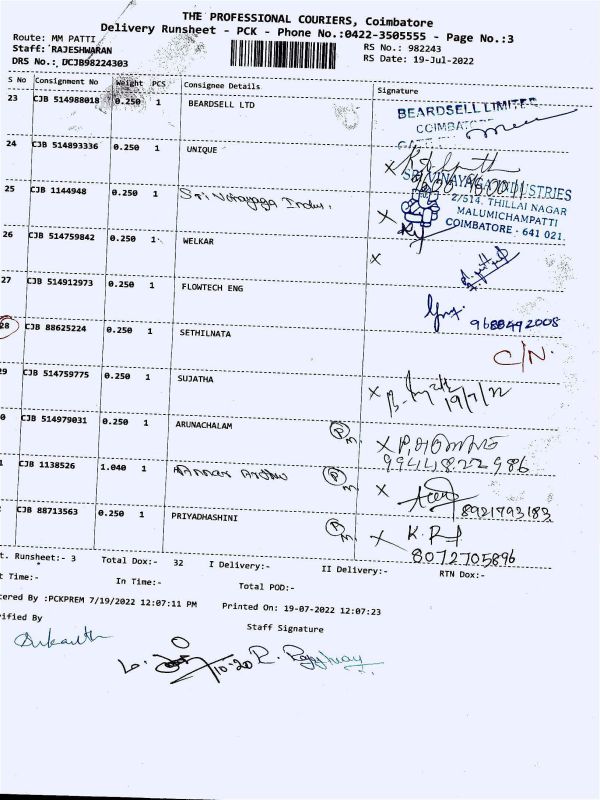 THE PROFESSIONAL COURIERS, Coimbatore
Delivery Runsheet - PCK - Phone No.:0422-3505555 - Page No.:3
Route: MM PATTI
Staff: RAJESHWARAN
DRS No.: DCJB98224303
RS No.: 982243
RS Date: 19-Jul-2022
S No Consignment No Weight PCS Consignee Details Signature
23 CJB 514988018 0.250 1 BEARDSELL LTD
BEARDSELL LIMITED
24 CJB 514893336 0.250 1 UNIQUE X
25 CJB 1144948 0.250 1 X
SRI VINAYAGA INDUSTRIES
2/514, THILLAI NAGAR
MALUMICHAMPATTI
COIMBATORE - 641 021.
26 CJB 514759842 0.250 1 WELKAR X
27 CJB 514912973 0.250 1 FLOWTECH ENG
9688492008
28 CJB 88625224 0.250 1 SETHILNATA C/N.
29 CJB 514759775 0.250 1 SUJATHA X 19/7/22
0 CJB 514979031 0.250 1 ARUNACHALAM X
9944822986
1 CJB 1138526 1.040 1 X
8921793183
CJB 88713563 0.250 1 PRIYADHASHINI X K. R
8072705896
t. Runsheet:- 3 Total Dox:- 32 I Delivery:- II Delivery:- RTN Dox:-
t Time:- In Time:- Total POD:-
tered By :PCKPREM 7/19/2022 12:07:11 PM Printed On: 19-07-2022 12:07:23
rified By Staff Signature
10-20